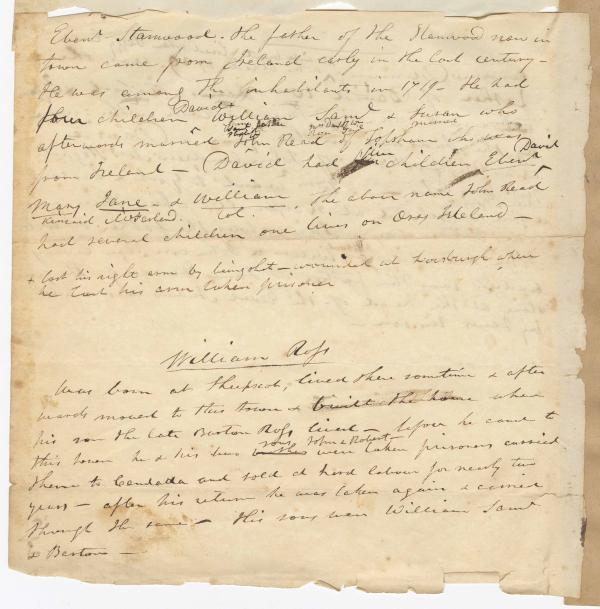 Ebenr. Stanwood - the father of the Stanwood now in
town came from Ireland early in the last century -
He was among the inhabitants in 1719 - He had
David +
four children William Saml. & Susan who
afterwards married John Read of Topsham who was
from Ireland - (David had children Ebenr. David
Mary Jane - & William . The above name John Read
Kincaid McFarland. Col.
had several children one lives on Orrs Island -
+ lost his right arm by being shot - wounded at Louisburgh when
he lost his arm taken prisoner
William Ross
Was born at Sheepscot, lived there sometime & after
wards moved to this town & built the house where
his son the late Barton Ross lived - before he came to
sons John & Robert -
this town he & his two were taken prisoners carried
thence to Candada and sold at hard labour for nearly two
years - after his return he was taken again & carried
through the same - His sons were William Saml.
& Barton -